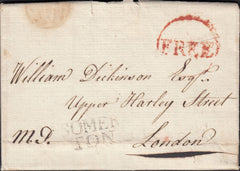 FREE
William Dickinson Esqr.
Upper Harley Street
London
M.D.
SOMER
TON